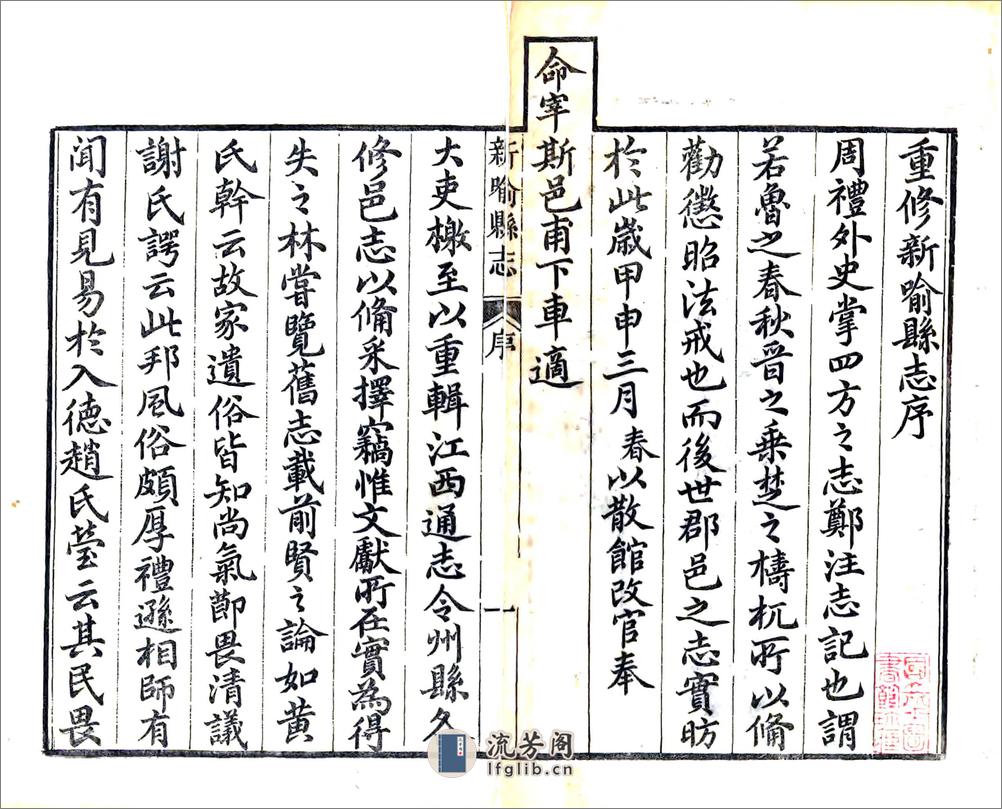 重修新喻縣志序
周禮外史掌四方之志鄭注志記也謂
若魯之春秋晉之乗楚之檮杌所以備
勸懲昭法戒也而後世郡邑之志實昉
於此歲甲申三月春以散館改官奉
命宰斯邑甫下車適
新喻縣志 序 一
大吏檄至以重輯江西通志令州縣各
修邑志以備采擇竊惟文獻所在實為得
失之林嘗覽舊志載前賢之論如黄
氏幹云故家遺俗皆知尚氣節畏清議
謝氏諤云此邦風俗頗厚禮遜相師有
聞有見易於入德趙氏瑩云其民畏
流芳阁
lfglib.cn